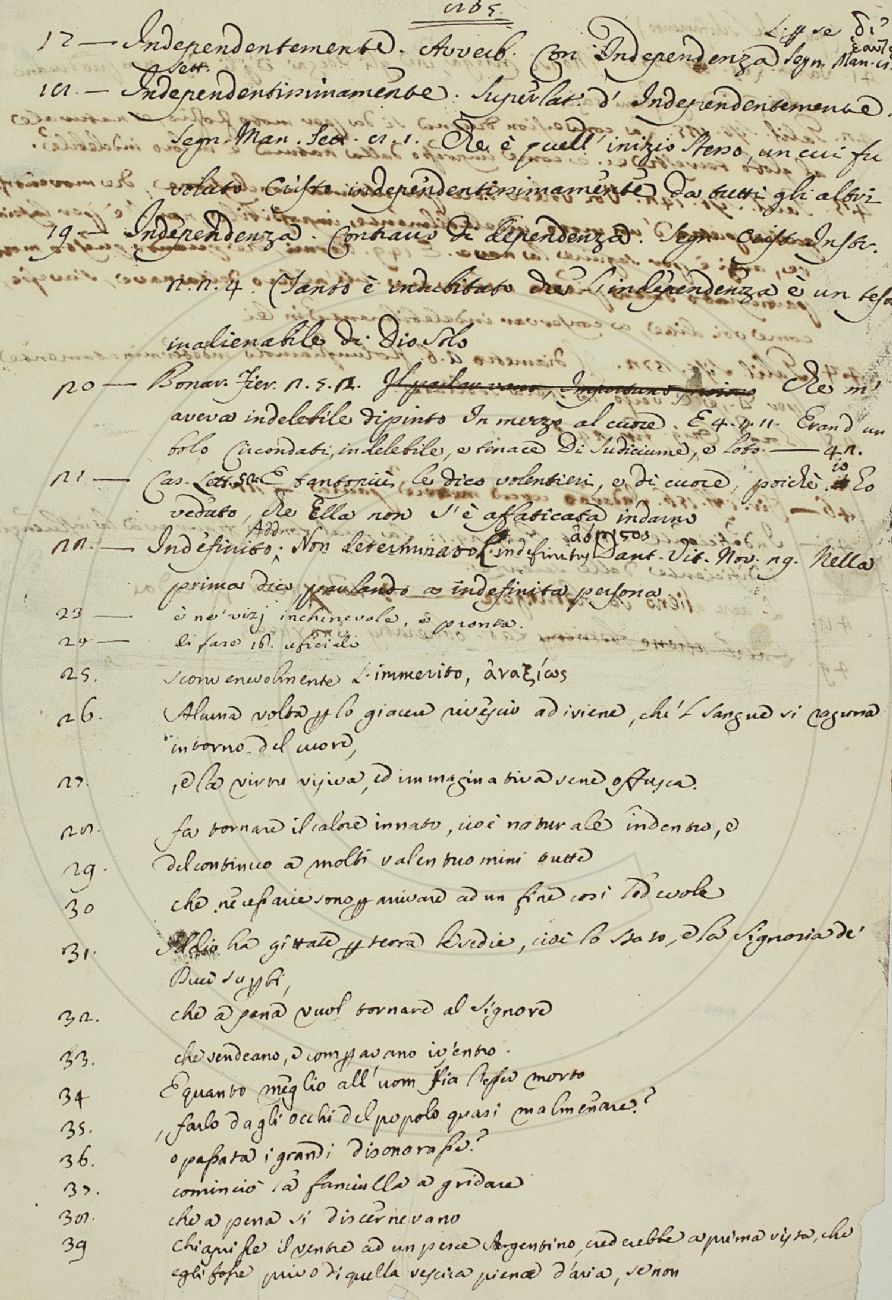 17 — Independentemente. Avverb. Con Independenza Segn. Man.
— Independentissimamente. Superlat. d' Independentemente
Segn. Man. Sett. Che è quell' inizio stesso, un cui fu
voluto Cristo independentissimamente da tutti gli altri
19 — Independenza. Contrario di dipendenza. Segn. Crist. Instr.
4 Tanto è indubitato che l'independenza è un
inalienabile di Dio solo
20 — Bonar. Fier. Che m'
aveva indelebile dipinto In mezzo al cuore. E 4. Erand un
bolo Circondati, indelebile, e tenace Di sudiciume, e loto. —
21 — Cas. Lett. E tantopiù, le dico volentieri, e di cuore, poichè io Ho
veduto, che Ella non s'è affaticata indarno
22. — Indefinito. Add. Non determinato. L. indefinitus, ἀόριστος Dant. Vit. Nov. 29. Nella
prima dico parlando a indefinita persona
23 — è ne' vizj inchinevole, e pronta.
24 — di fare 16. uficiali
25. sconvenevolmente L. immerito, ἀναξίως
26. Alcuna volta per lo giacere rivescio adiviene, che 'l sangue si raguna
intorno del cuore,
27. , e la virtù visiva, ed immaginativa sene offusca.
28. fa tornare il calore innato, cioè naturale indentro, e
29. del continuo a molti valentuomini tutte
30 che necessarie sono per arrivare ad un fine così lodevole
31. Iddio ha gittate per terra le sedie, cioè lo stato, e la signoria de'
Duci superbi,
32. che a pena vuol tornare al Signore
33. che vendeano, e comperavano iventro.
34 E quanto meglio all' uom sia l'esser morto
35. , farlo dagli occhi del popolo quasi malmenare?
36. o passata i grandi disonorasse?
37. cominciò la fanciulla a gridare
38. che a pena si discernevano
39 Chi aprisse il ventre ad un pesce Argentino, crederebbe a prima vista, che
egli fosse privo di quella vescica piena d'aria, se non